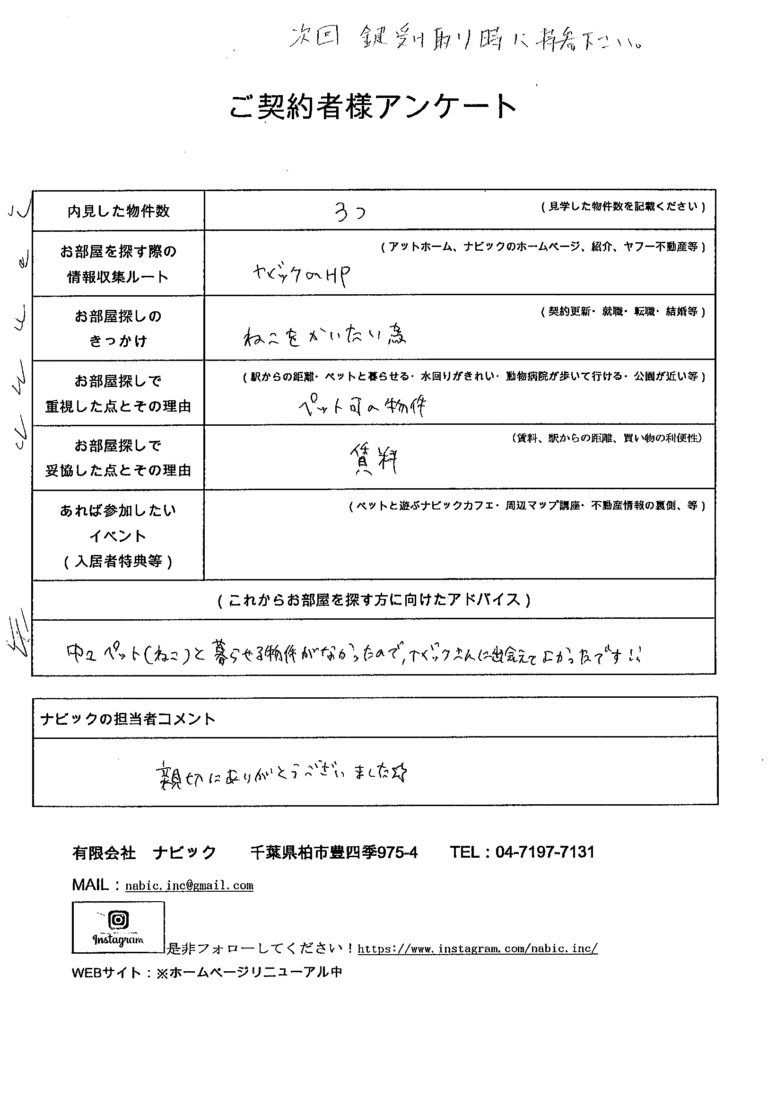 次回 鍵受け取り時に持参下さい。
ご契約者様アンケート
内見した物件数
(見学した物件数を記載ください)
3つ
お部屋を探す際の
情報収集ルート
(アットホーム、ナビックのホームページ、紹介、ヤフー不動産等)
ナビックのHP
お部屋探しの
きっかけ
(契約更新・就職・転職・結婚等)
ねこをかいたい為
お部屋探しで
重視した点とその理由
(駅からの距離・ペットと暮らせる・水回りがきれい・動物病院が歩いて行ける・公園が近い等)
ペット可の物件
お部屋探しで
妥協した点とその理由
(賃料、駅からの距離、買い物の利便性)
賃料
あれば参加したい
イベント
(入居者特典等)
(ペットと遊ぶナビックカフェ・周辺マップ講座・不動産情報の裏側、等)
(これからお部屋を探す方に向けたアドバイス)
ペット(ねこ)と暮らせる物件がなかったので、ナビックさんに出会えてよかったです!!
ナビックの担当者コメント
親切にありがとうございました☆
有限会社 ナビック 千葉県柏市豊四季975-4 TEL：04-7197-7131
MAIL：nabic.inc@gmail.com
Instagram
是非フォローしてください！https://www.instagram.com/nabic.inc/
WEBサイト：※ホームページリニューアル中